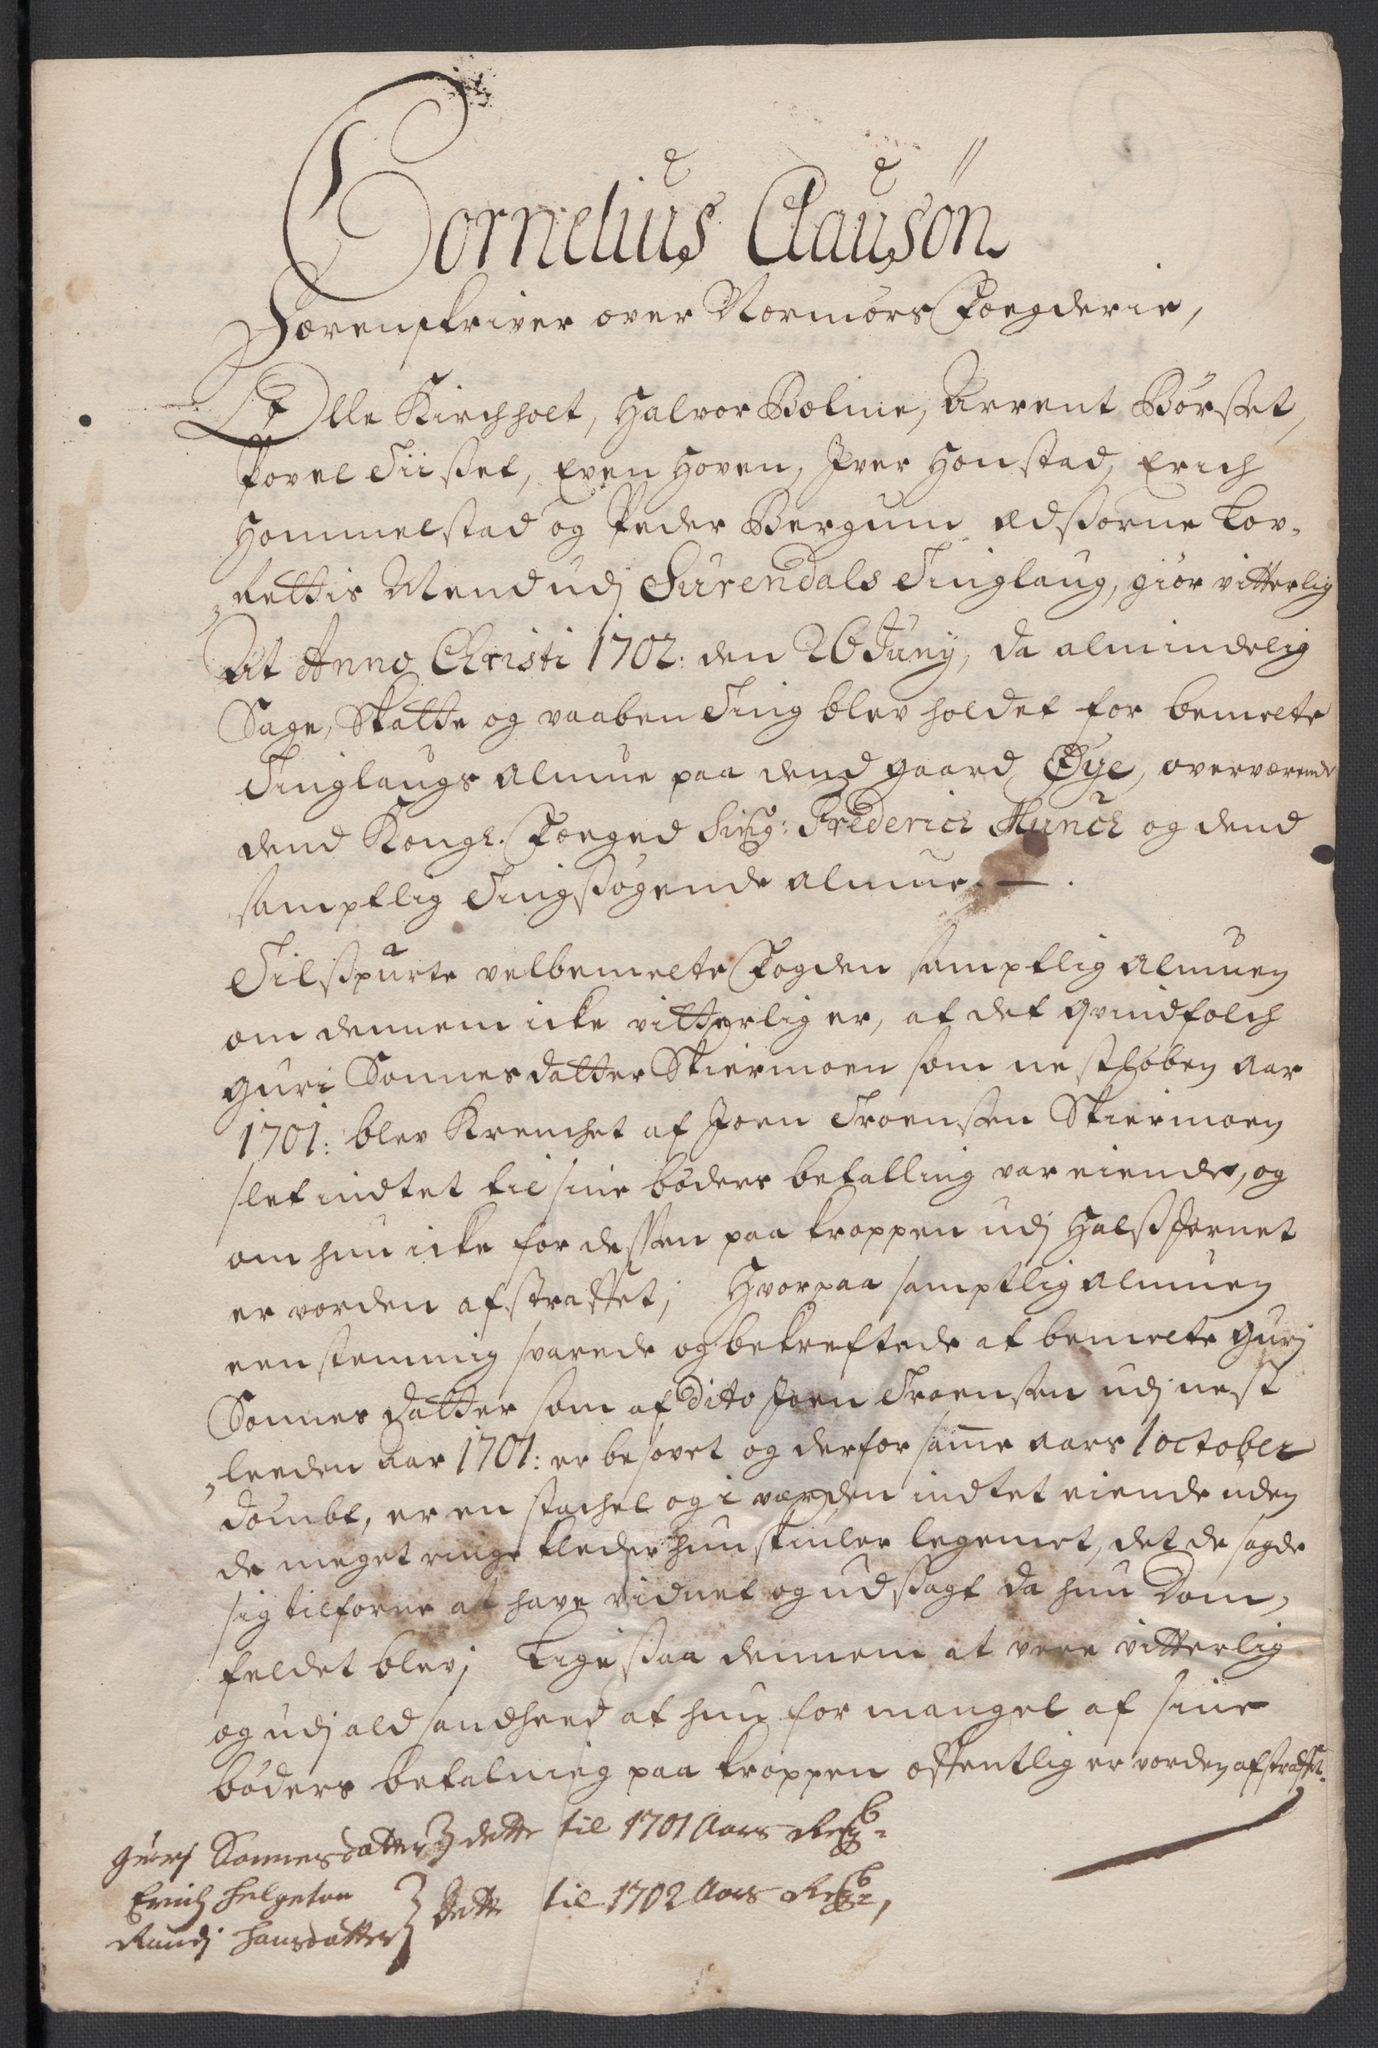 Cornelius Clausøn
Sorenskriver over Normørs Fogderie,
Olle Kirchholt, Halvor Bolme, Arrent Børset,
Povel Tiiset, Even Hoven, Iver Honstad, Erich
Hommelstad og Peder Bergum, Edsorne Lov-
Rettis Mend udj Surendals Tinglaug, giør vitterlig
At Anno Christi 1702: den 26 Juny, da almindelig
Sage, Skatte og vaaben Ting blev holdet for bemelte
Tinglaugs almue paa dend gaard Øye, overværende
dend Kongl. Foged Sig: Frederich Munch og dend
samptlig Tingsøgende almue. —
Tilspurte velbemelte Fogden samptlig almuen
om dennem icke vitterlig er, at det qvindfolch
Guri Sonnesdatter Skiermoen som nestløben aar
1701: blev Krenchet af Joen Troensen Skiermoen
slet indtet til sine bøders betalling var eiende, og
om hun icke for dessen paa kroppen udj Halsjernet
er vorden afstraffet; Hvorpaa samptlig almuen
eenstemmig svarede og bekreftede at bemelte Gurj
Sonnesdatter som af dito Joen Troensen udj nest
leeden aar 1701: er besovet og derfor samme aars 1 october
dømbt, er en stachel og i værden indtet eiende uden
de meget ringe kleder hun skiuler legemet, det de sagde
sig tilforne at have vidnet og udsagt da hun Dom-
feldet blev; Ligesaa dennem at vere vitterlig
og udj ald sandheed at hun for mangel af sine
bøders betalning paa kroppen offentlig er vorden afstraffet.
Gurj Sonnesdatter } dette til 1701 Aars Regsb:
Erich Helgeton
Randj Hansdatter } Dette til 1702 Aars Regsb: